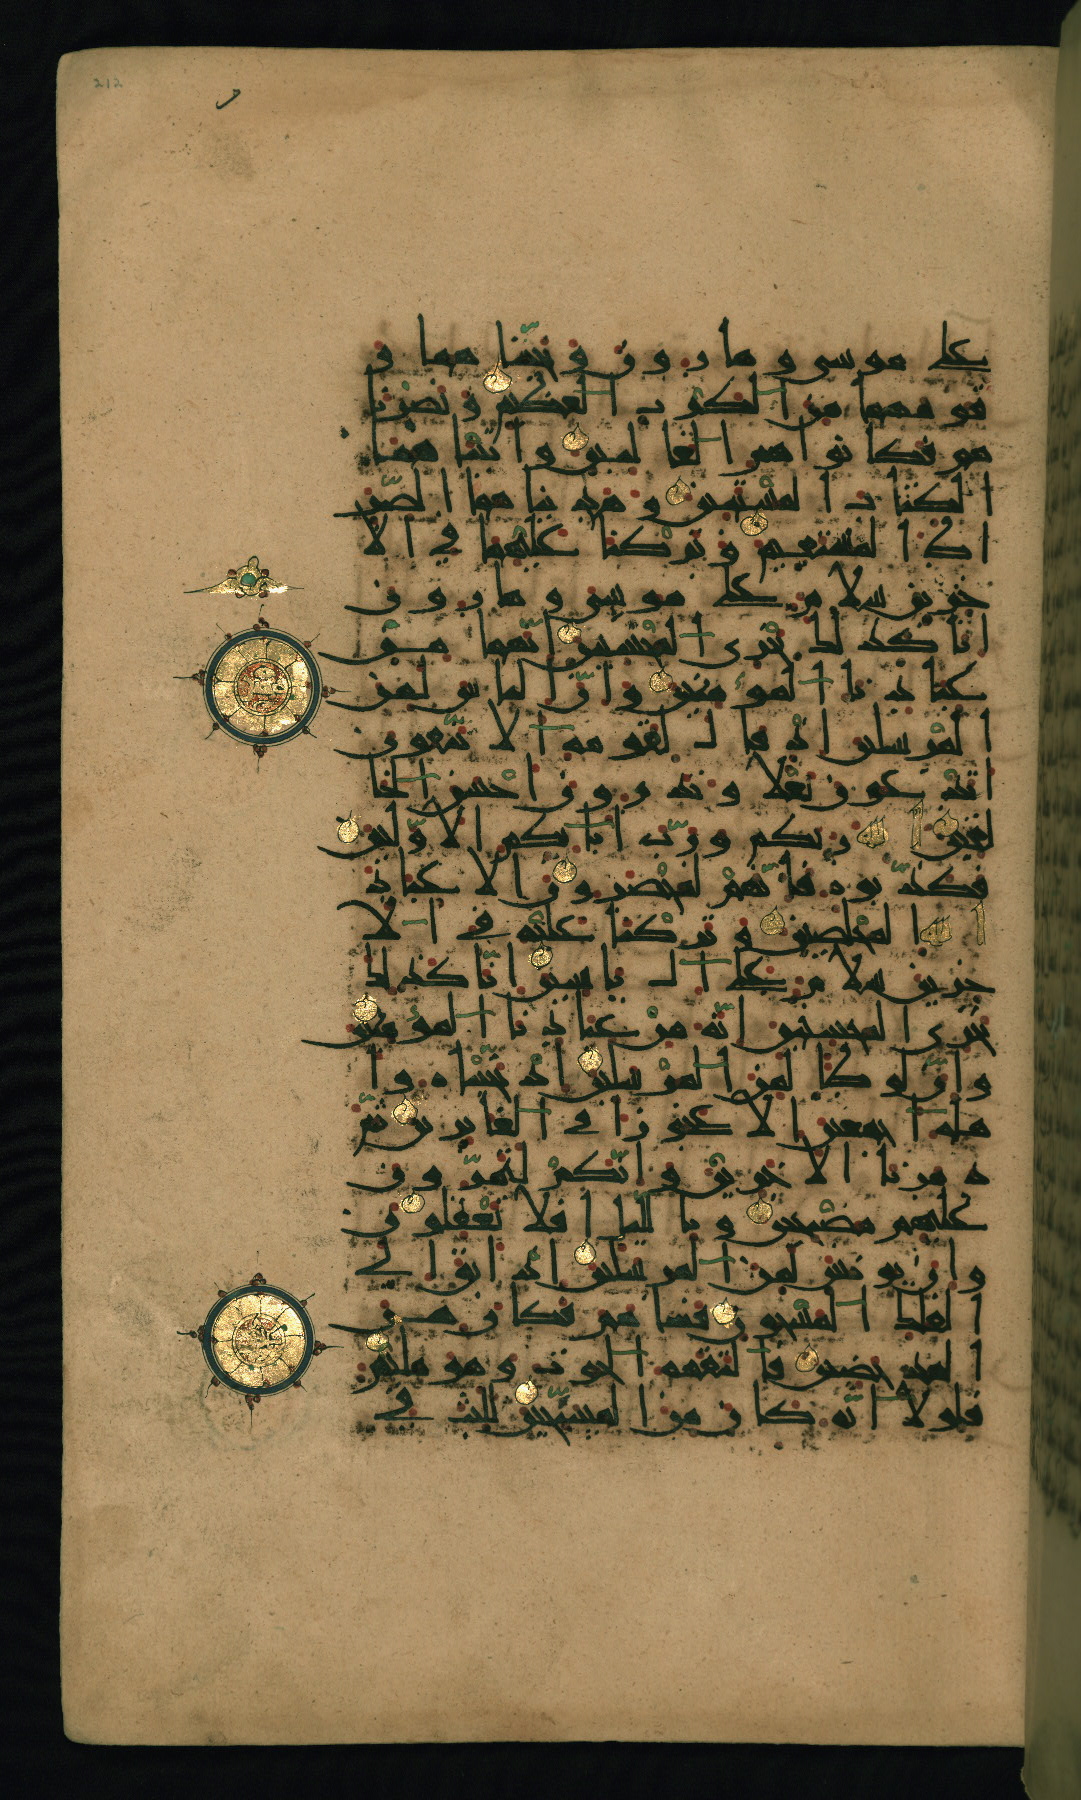 212
على موسى وهارون ونجيناهما و
قومهما من الكرب العظيم ونصرنا
هم فكانوا هم الغالبين واتيناهما
الكتاب المستبين وهديناهما الصر
اط المستقيم وتركنا عليهما في الا
خرين سلام على موسى وهارون
انا كذلك نجزي المحسنين انهما من
عبادنا المؤمنين وان الياس لمن
المرسلين اذ قال لقومه الا تتقون
اتدعون بعلا وتذرون احسن الخا
لقين الله ربكم ورب ابائكم الاولين
فكذبوه فانهم لمحضرون الا عباد
الله المخلصين وتركنا عليه في الا
خرين سلام على ال ياسين انا كذلك
نجزي المحسنين انه من عبادنا المؤمنين
وان لوطا لمن المرسلين اذ نجيناه وا
هله اجمعين الا عجوزا في الغابرين ثم
دمرنا الاخرين وانكم لتمرون
عليهم مصبحين وبالليل افلا تعقلون
وان يونس لمن المرسلين اذ ابق الى
الفلك المشحون فساهم فكان من
المدحضين فالتقمه الحوت وهو مليم
فلولا انه كان من المسبحين للبث في